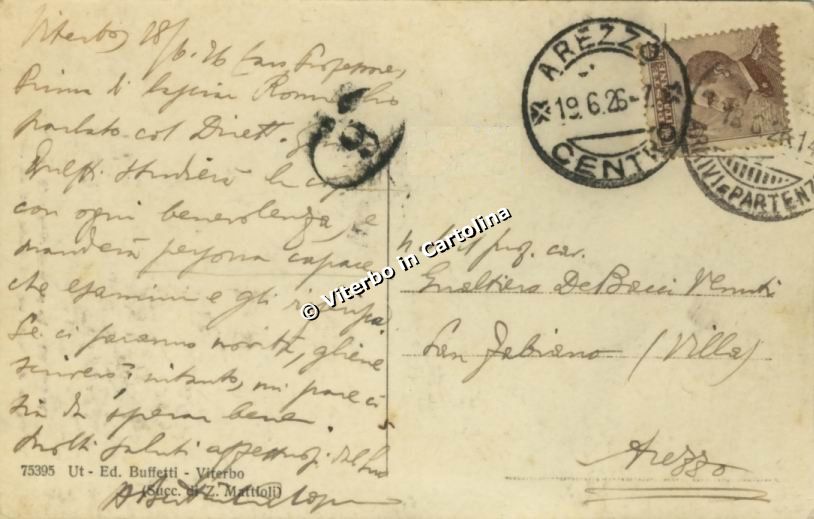 Viterbo, 18/6.26 Caro Professore,
Prima di lasciar Roma ho
parlato col Dirett.
studierà la
con ogni benevolenza, e
manderà persona capace
che esamini e gli
Se ci saranno novità, gliene
scriverò; intanto, mi pare ci
sia da sperar bene.
Molti saluti affettuosi dal Suo
75395 Ut - Ed. Buffetti - Viterbo
(Succ. di Z. Mattioli)
AREZZO
19.6.26
CENTRO
ARRIVI E PARTENZE
© Viterbo in Cartolina
prof. cav.
Gualtiero De Bacci Venuti
San Fabiano (Villa)
Arezzo